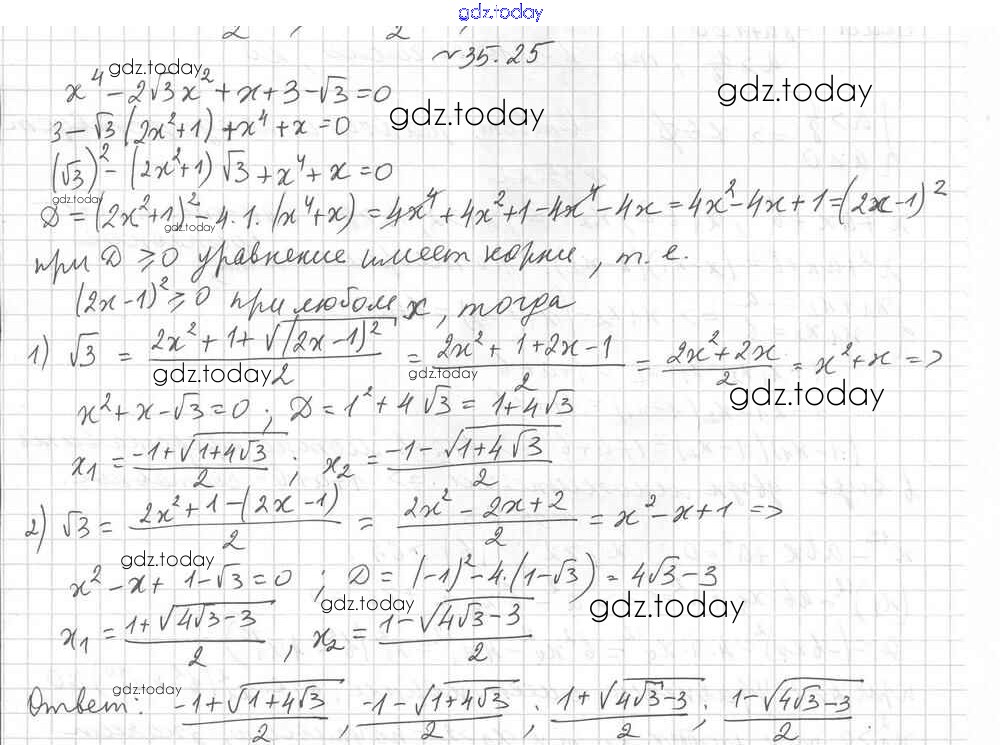 gdz.today
2 , 2 ,
№35.25
gdz.today
x⁴ − 2√3x² + x + 3 − √3 = 0
gdz.today
gdz.today
3 − √3(2x²+1) + x⁴ + x = 0
(√3)² − (2x²+1)√3 + x⁴ + x = 0
gdz.today
D = (2x²+1)² − 4·1·(x⁴+x) = 4x⁴ + 4x² + 1 − 4x⁴ − 4x = 4x² − 4x + 1 = (2x−1)²
gdz.today
при D ≥ 0 уравнение имеет корни, т. е.
(2x−1)² ≥ 0 при любом x, тогда
1) √3 = (2x² + 1 + √(2x−1)²)/2 = (2x² + 1 + 2x − 1)/2 = (2x² + 2x)/2 = x² + x =>
gdz.today
gdz.today
gdz.today
x² + x − √3 = 0 ; D = 1² + 4√3 = 1 + 4√3
x₁ = (−1 + √(1+4√3))/2 ; x₂ = (−1 − √(1+4√3))/2
2) √3 = (2x² + 1 − (2x − 1))/2 = (2x² − 2x + 2)/2 = x² − x + 1 =>
gdz.today
x² − x + 1 − √3 = 0 ; D = (−1)² − 4·(1−√3) = 4√3 − 3
gdz.today
gdz.today
x₁ = (1 + √(4√3−3))/2 , x₂ = (1 − √(4√3−3))/2
gdz.today
Ответ: (−1+√(1+4√3))/2 , (−1−√(1+4√3))/2 ; (1+√(4√3−3))/2 ; (1−√(4√3−3))/2 .